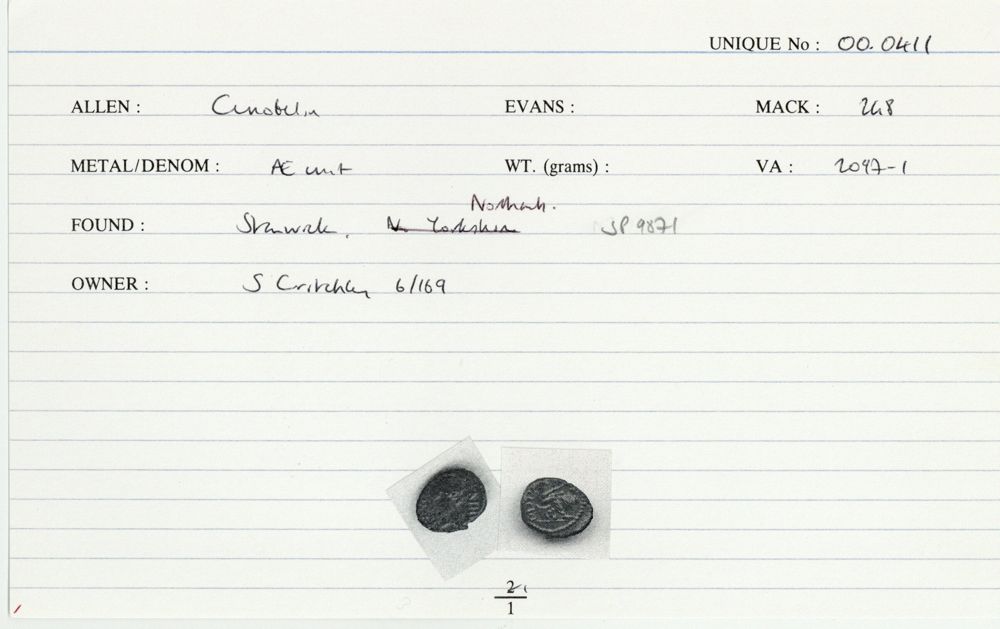 UNIQUE No : 00.0411
ALLEN : Cunobelin EVANS : MACK : 248
METAL/DENOM : Æ unit WT. (grams) : VA : 2097-1
Northants.
FOUND : Stanwick, N. Yorkshire SP 9871
OWNER : S Critchley 6/169
2
1